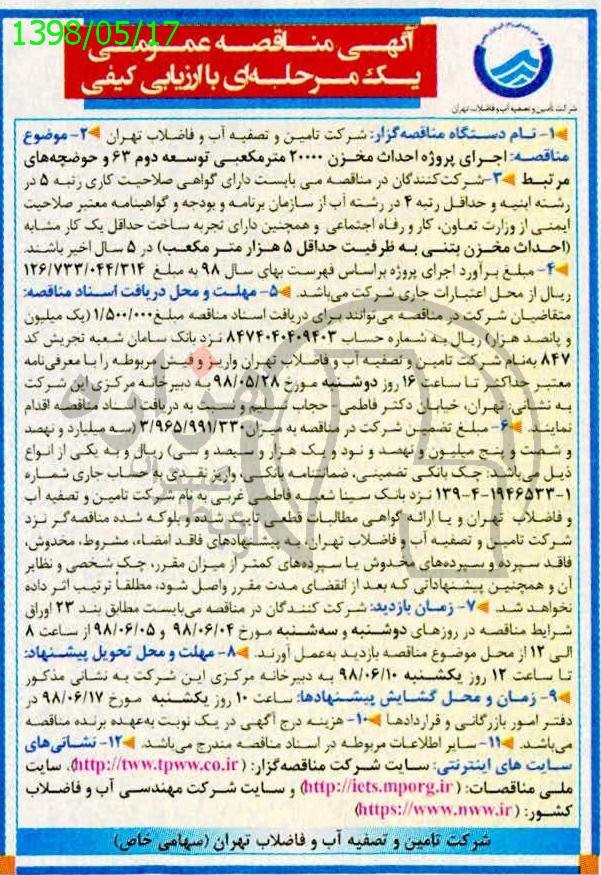 1398/05/17
آگهی مناقصه عمومی
یک مرحله‌ای با ارزیابی کیفی
شرکت تأمین و تصفیه آب و فاضلاب تهران
۱- نام دستگاه مناقصه‌گزار: شرکت تامین و تصفیه آب و فاضلاب تهران ۲- موضوع
مناقصه: اجرای پروژه احداث مخزن ۲۰۰۰۰ مترمکعبی توسعه دوم ۶۳ و حوضچه‌های
مرتبط ۳- شرکت‌کنندگان در مناقصه می بایست دارای گواهی صلاحیت کاری رتبه ۵ در
رشته ابنیه و حداقل رتبه ۴ در رشته آب از سازمان برنامه و بودجه و گواهینامه معتبر صلاحیت
ایمنی از وزارت تعاون، کار و رفاه اجتماعی و همچنین دارای تجربه ساخت حداقل یک کار مشابه
(احداث مخزن بتنی به ظرفیت حداقل ۵ هزار متر مکعب) در ۵ سال اخیر باشند.
۴- مبلغ برآورد اجرای پروژه براساس فهرست بهای سال ۹۸ به مبلغ ۱۲۶/۷۳۳/۰۴۴/۳۱۴
ریال از محل اعتبارات جاری شرکت می‌باشد. ۵- مهلت و محل دریافت اسناد مناقصه:
متقاضیان شرکت در مناقصه می‌توانند برای دریافت اسناد مناقصه مبلغ ۱/۵۰۰/۰۰۰ (یک میلیون
و پانصد هزار) ریال به شماره حساب ۸۴۷۴۰۴۰۴۰۹۴۰۳ نزد بانک سامان شعبه تجریش کد
۸۴۷ به‌نام شرکت تامین و تصفیه آب و فاضلاب تهران واریز و فیش مربوطه را با معرفی‌نامه
معتبر حداکثر تا ساعت ۱۶ روز دوشنبه مورخ ۹۸/۰۵/۲۸ به دبیرخانه مرکزی این شرکت
به نشانی: تهران، خیابان دکتر فاطمی، حجاب تسلیم و نسبت به دریافت اسناد مناقصه اقدام
نمایند. ۶- مبلغ تضمین شرکت در مناقصه به میزان ۳/۹۶۵/۹۹۱/۳۳۰ (سه میلیارد و نهصد
و شصت و پنج میلیون و نهصد و نود و یک هزار و سیصد و سی) ریال و به یکی از انواع
ذیل می‌باشد: چک بانکی تضمینی، ضمانتنامه بانکی، واریز نقدی به حساب جاری شماره
۱۳۹-۴-۱۹۴۶۵۳۳-۱ نزد بانک سینا شعبه فاطمی غربی به نام شرکت تامین و تصفیه آب
و فاضلاب تهران و یا ارائه گواهی مطالبات قطعی تایید شده و بلوکه شده مناقصه‌گر نزد
شرکت تامین و تصفیه آب و فاضلاب تهران، به پیشنهادهای فاقد امضاء، مشروط، مخدوش،
فاقد سپرده و سپرده‌های مخدوش یا سپرده‌های کمتر از میزان مقرر، چک شخصی و نظایر
آن و همچنین پیشنهاداتی که بعد از انقضای مدت مقرر واصل شود، مطلقاً ترتیب اثر داده
نخواهد شد. ۷- زمان بازدید: شرکت کنندگان در مناقصه می‌بایست مطابق بند ۲۳ اوراق
شرایط مناقصه در روزهای دوشنبه و سه‌شنبه مورخ ۹۸/۰۶/۰۴ و ۹۸/۰۶/۰۵ از ساعت ۸
الی ۱۲ از محل موضوع مناقصه بازدید به‌عمل آورند. ۸- مهلت و محل تحویل پیشنهاد:
تا ساعت ۱۲ روز یکشنبه ۹۸/۰۶/۱۰ به دبیرخانه مرکزی این شرکت به نشانی مذکور
۹- زمان و محل گشایش پیشنهادها: ساعت ۱۰ روز یکشنبه مورخ ۹۸/۰۶/۱۷ در
دفتر امور بازرگانی و قراردادها ۱۰- هزینه درج آگهی در یک نوبت به‌عهده برنده مناقصه
می‌باشد. ۱۱- سایر اطلاعات مربوطه در اسناد مناقصه مندرج می‌باشد. ۱۲- نشانی‌های
سایت های اینترنتی: سایت شرکت مناقصه‌گزار: (http://tww.tpww.co.ir)، سایت
ملی مناقصات: (http://iets.mporg.ir) و سایت شرکت مهندسی آب و فاضلاب
کشور: (https://www.nww.ir)
شرکت تامین و تصفیه آب و فاضلاب تهران (سهامی خاص)